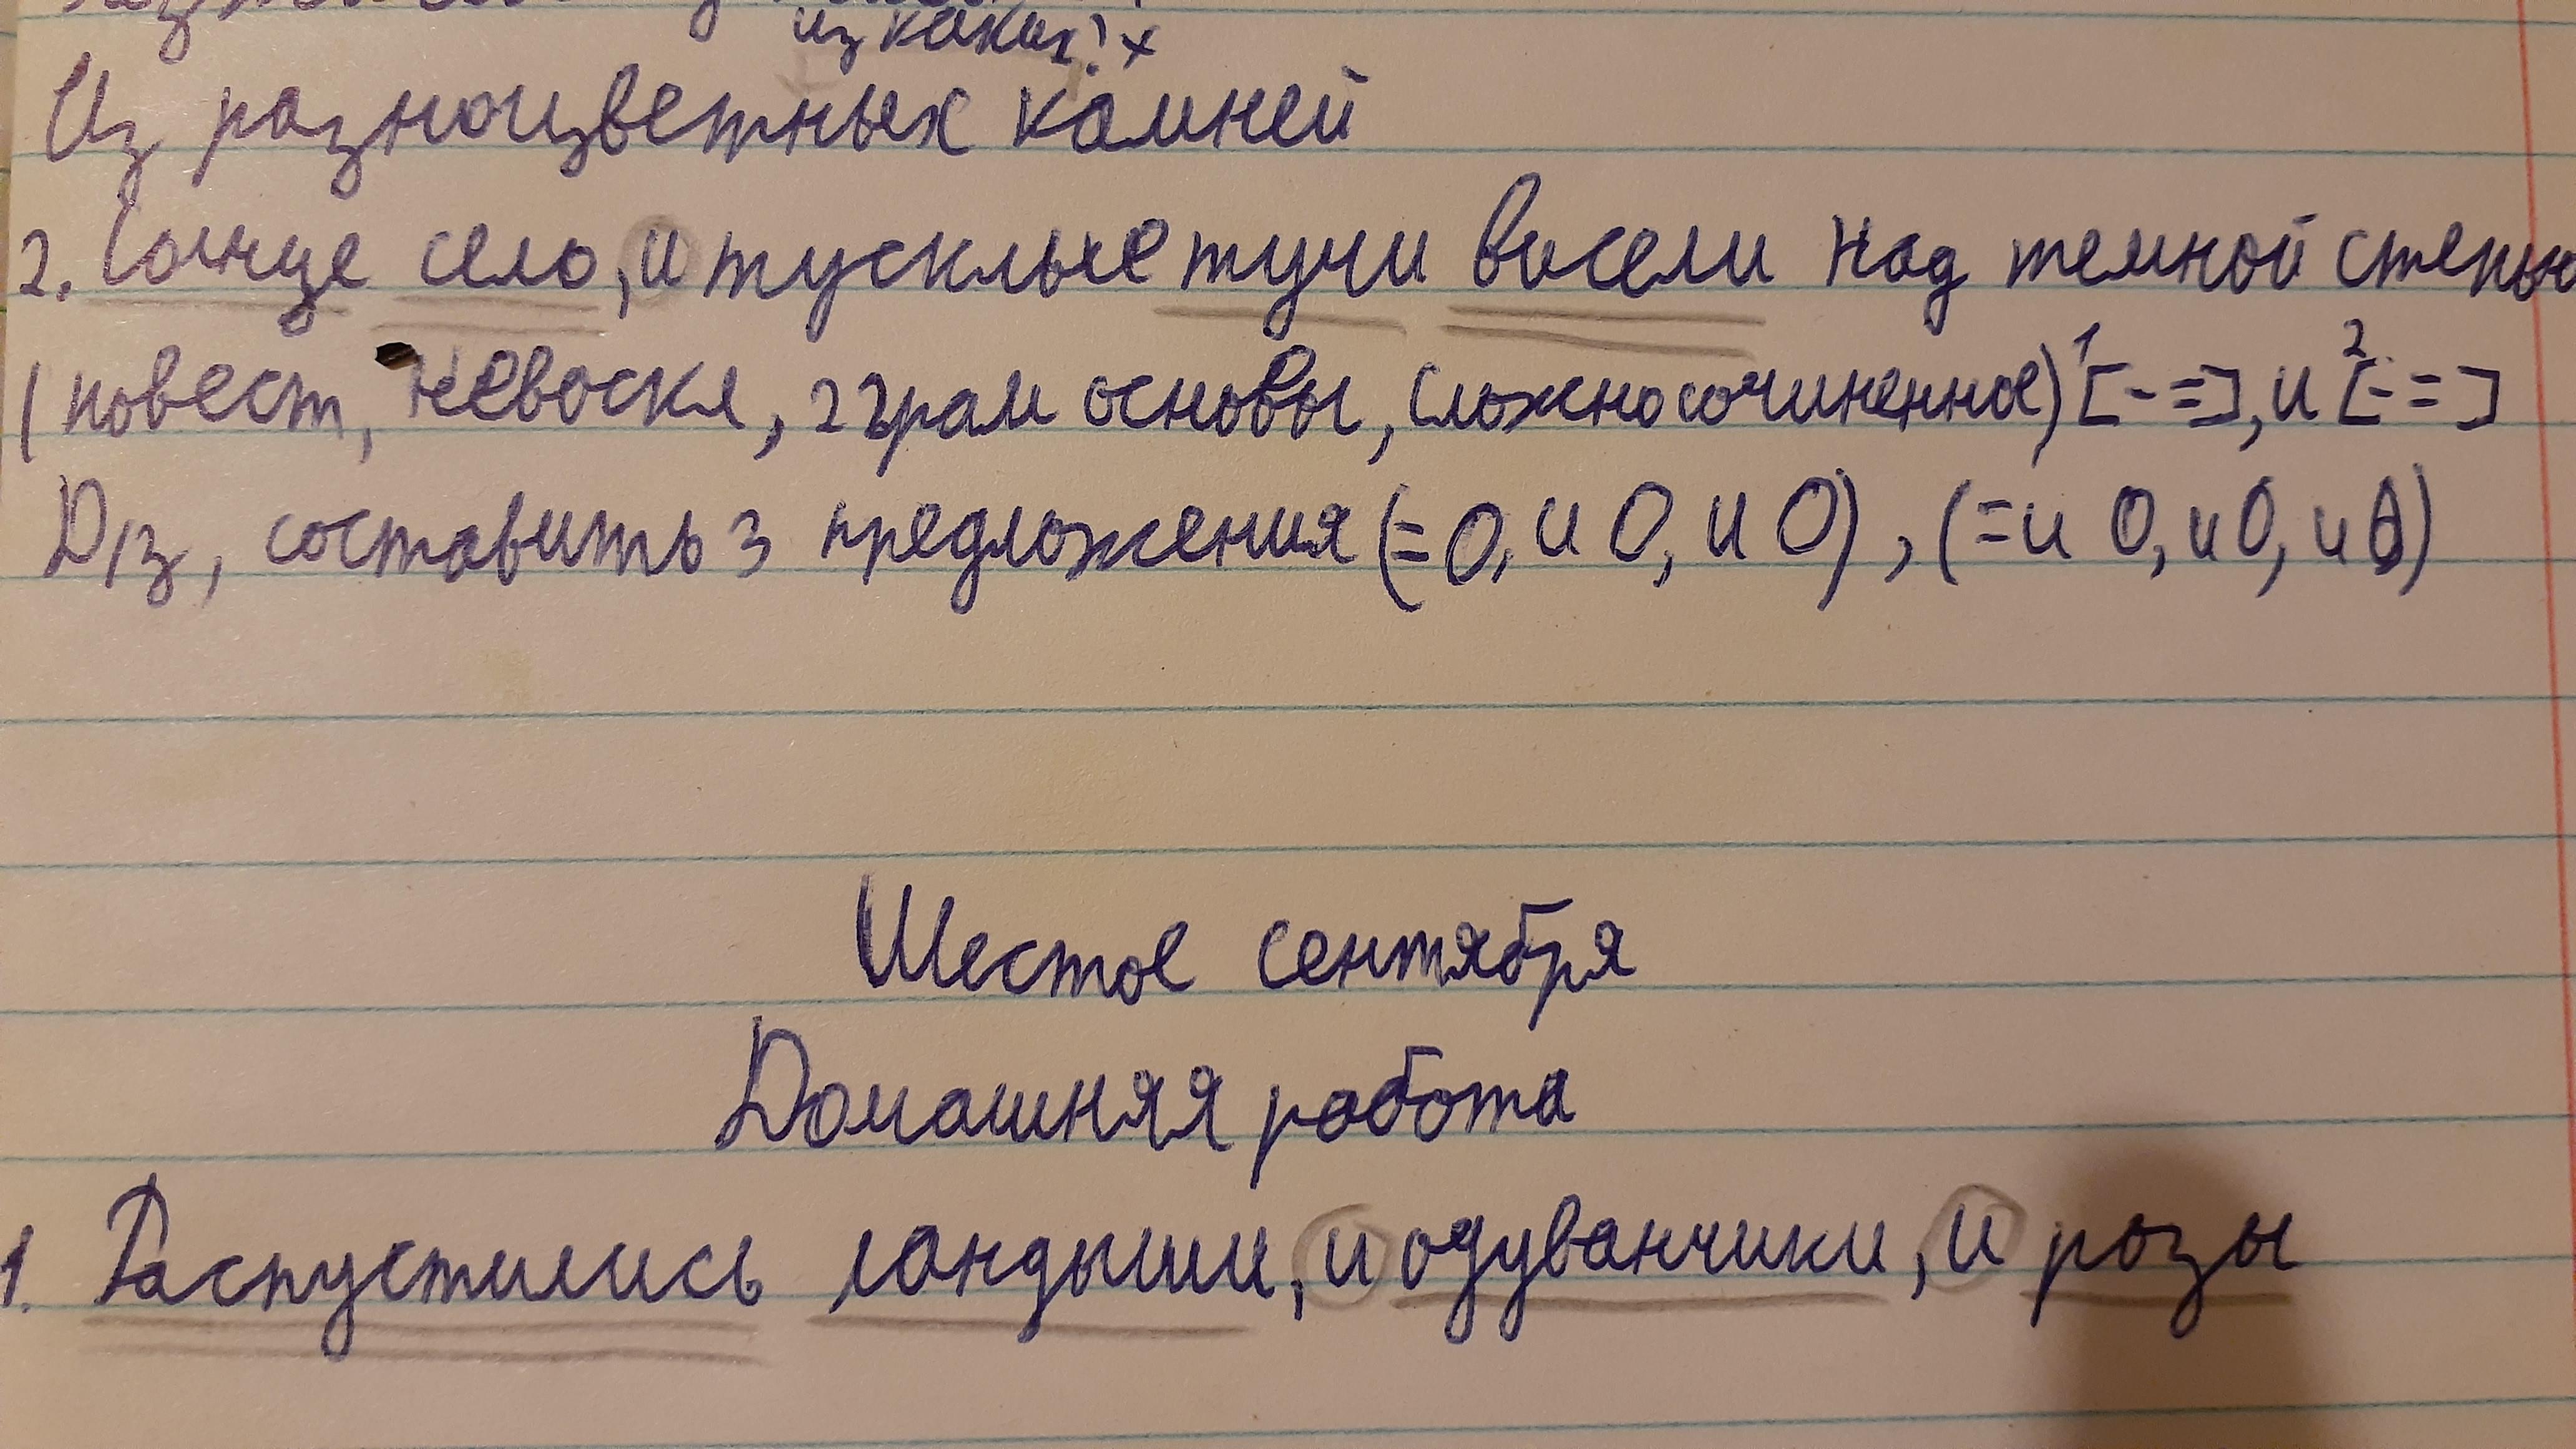 из каких? x
Из разноцветных камней
2. Солнце село, и тусклые тучи висели над темной степью
(повест, невоскл, 2 грам основы, сложносочиненное) 1[- =], и 2[- =]
Д/з, составить 3 предложения (= О, и О, и О), (= и О, и О, и О)
Шестое сентября
Домашняя работа
1. Распустились ландыши, и одуванчики, и розы